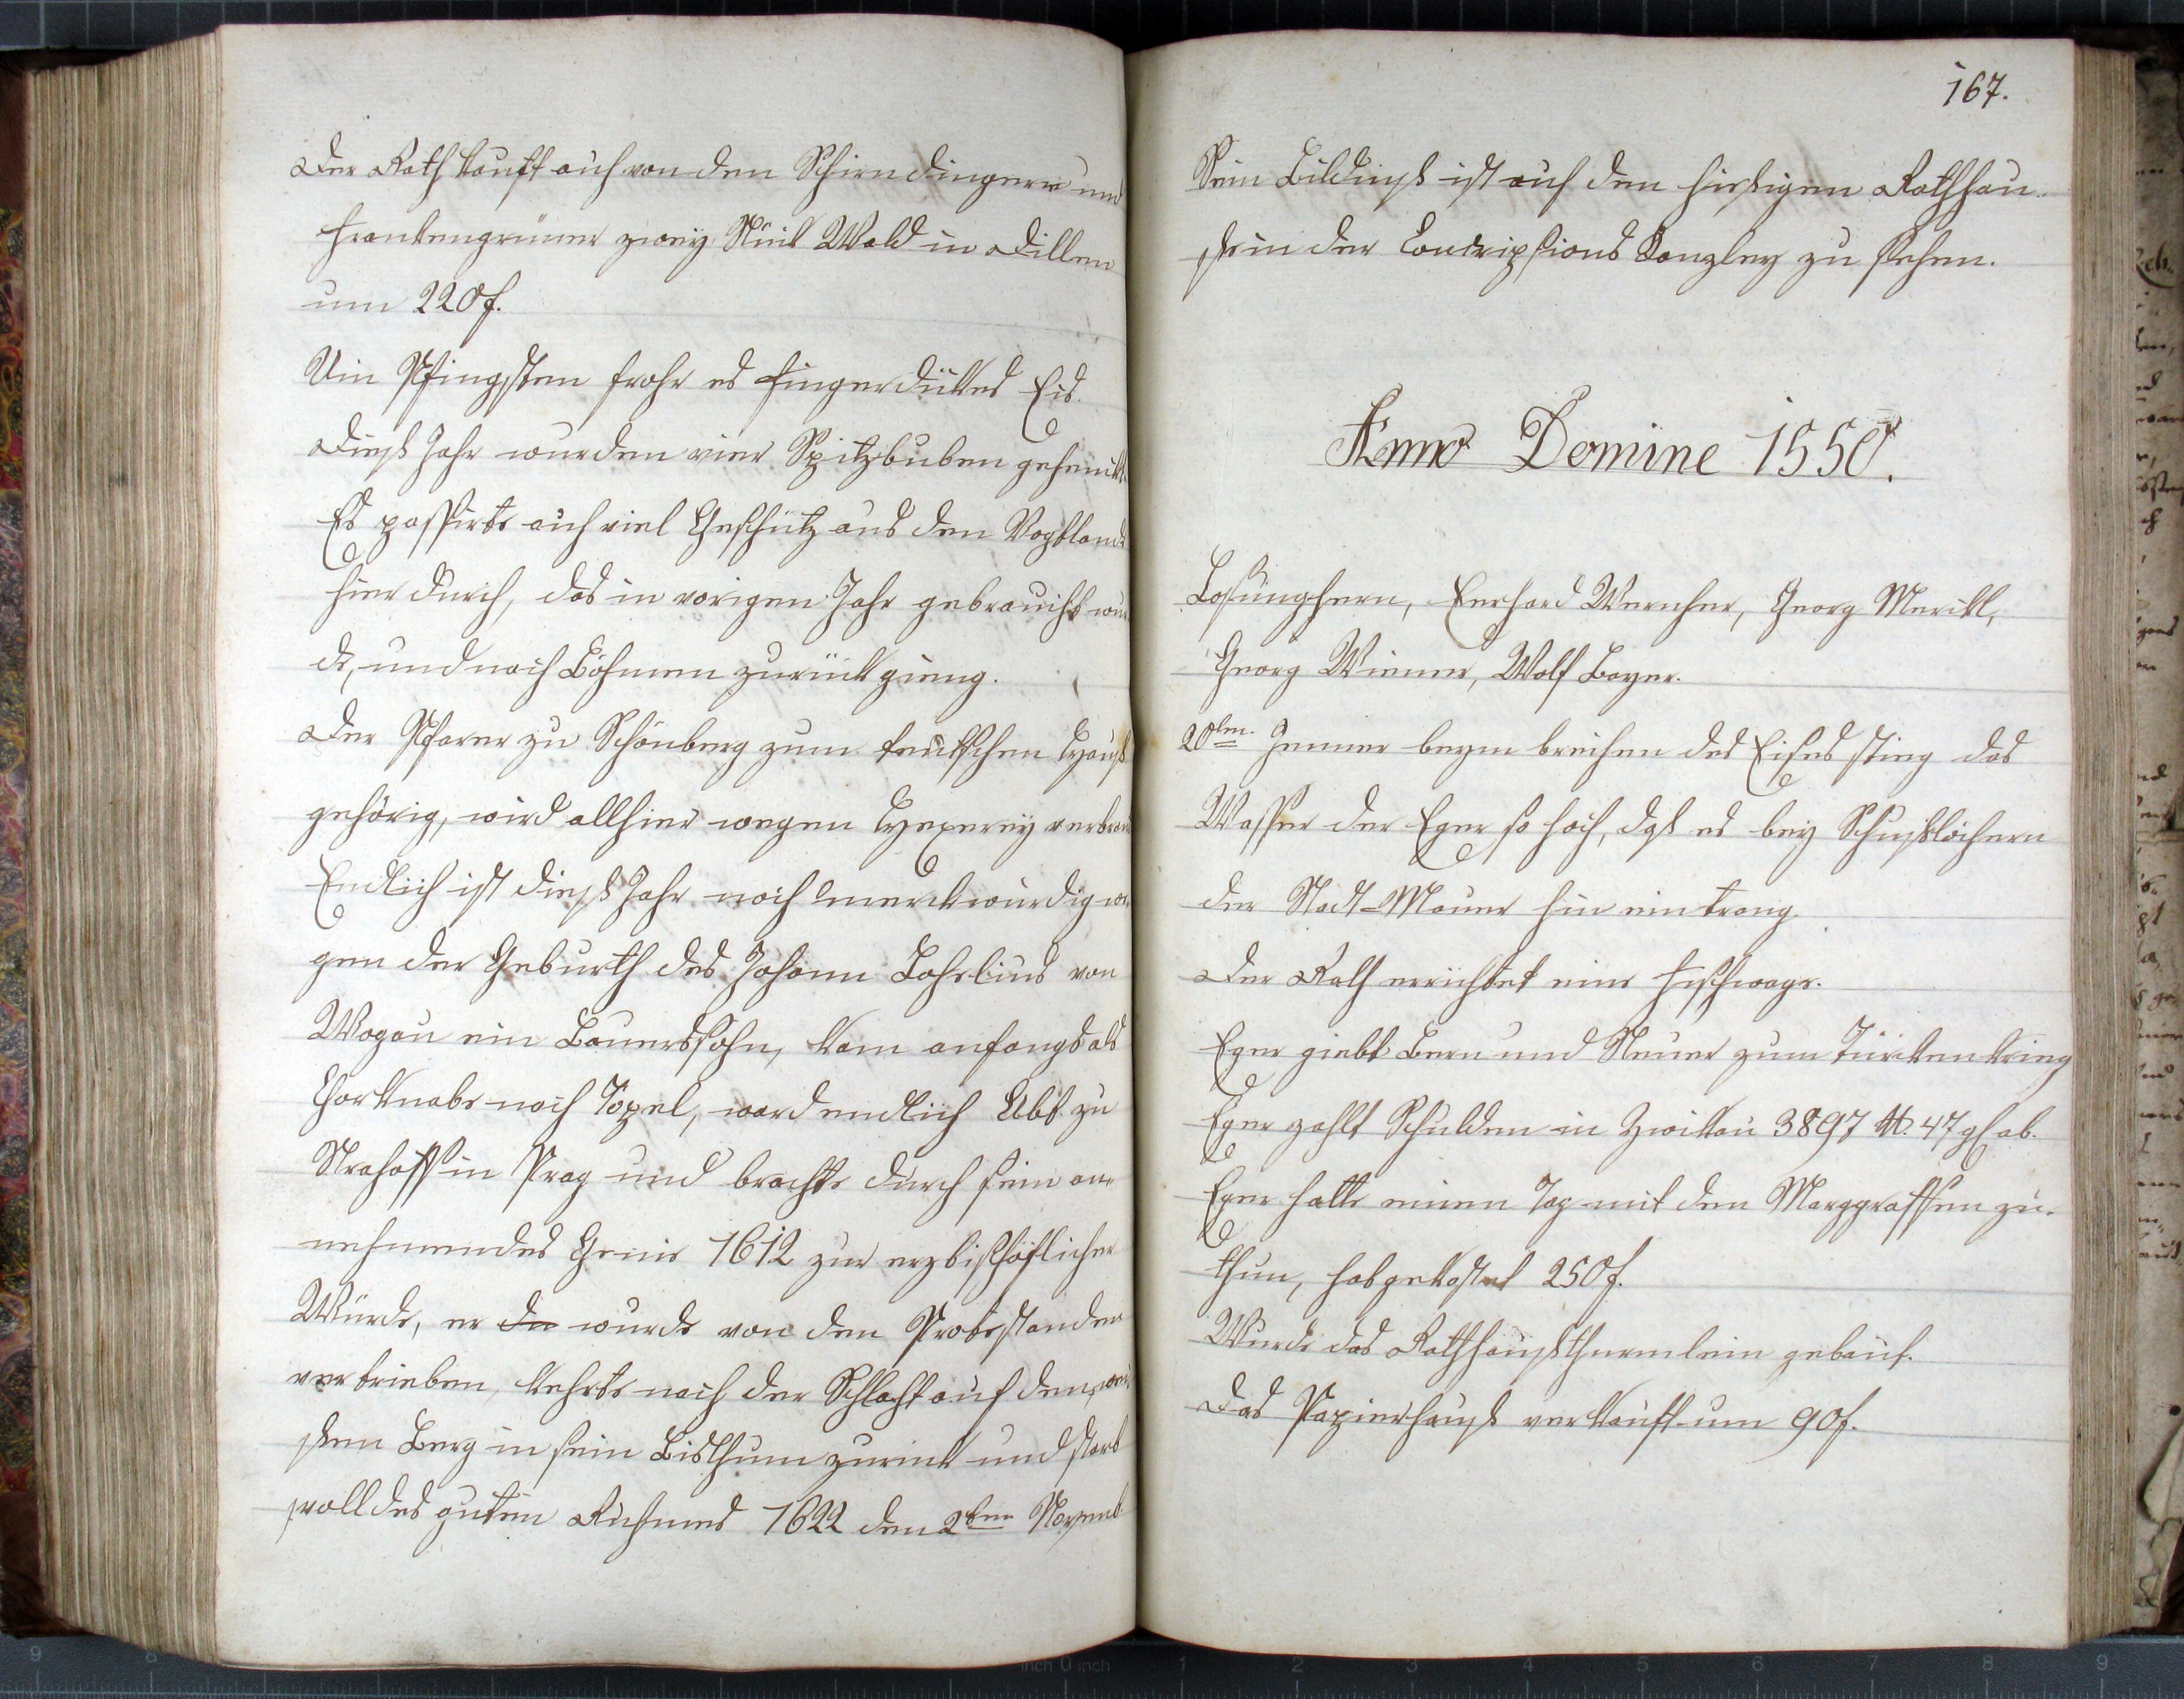 Der Rath kauft auch von den Schirndingern und
Frankengrüner zwey Stück Wald in Dillen
um 220 f.
Um Pfingsten frohr es fingerdickes Eis.
Dieß Jahr wurden vier Spitzbuben gehenckt.
Es passirte auch viel Geschütz aus den Vogtlande
hier durch, das in vorigen Jahr gebraucht wur
de, und nach Böhmen zurück gieng.
Der Pfarer zu Schönberg zum teutschen Hauß
gehörig, wird allhier wegen Hexerey verbran
Endlich ist dieß Jahr noch merckwürdig we
gen der Geburth des Johann Lohelius von
Wogau ein Bauerssohn, kam anfangs als
Chorknabe nach Töpel, ward endlich Abt zu
Strahoff in Prag und brachte durch sein an
nehmendes Genie 1612 zur erzbischöflicher
Würde, er die wurde von den Protestanden
vertrieben, kehrte nach der Schlacht auf den wei
ßen Berg in sein Bisthum zurück und starb
voll des guten Ruhmes 1622 den 2ten Novemb.
167.
Sein Bildniß ist auf den hiesigen Rathhau
se in der Conscriptions Kanzley zu sehen.
Anno Domine 1550.
Losunghern, Erhard Wernher, Georg Merckl,
Georg Wiener, Wolf Bayer.
20ten Jenner beym brechen des Eises stieg das
Wasser der Eger so hoch, daß es bey Schußlöchern
der Stadt-Mauer hin ein trang.
Der Rath errichtet eine Fischwage.
Eger giebt Bern und Steuer zum Türkenkrieg
Eger zahlt Schulden in Zwickau 3897 ft. 47 gl ab.
Eger hatte einen Tag mit den Marggraffen zu
thun, hat gekostet 250 f.
Wurde das Rathhaußthürmlein gebaut.
Das Papierhauß verkauft um 90 f.